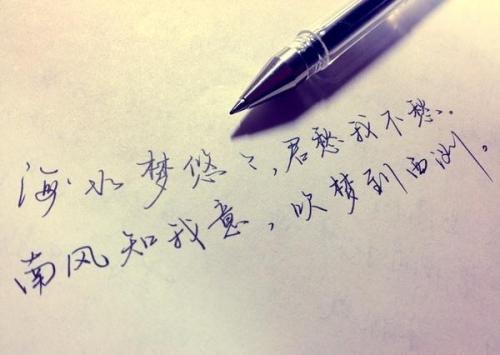 海水梦悠々，君愁我不愁。
南风知我意，吹梦到西洲。